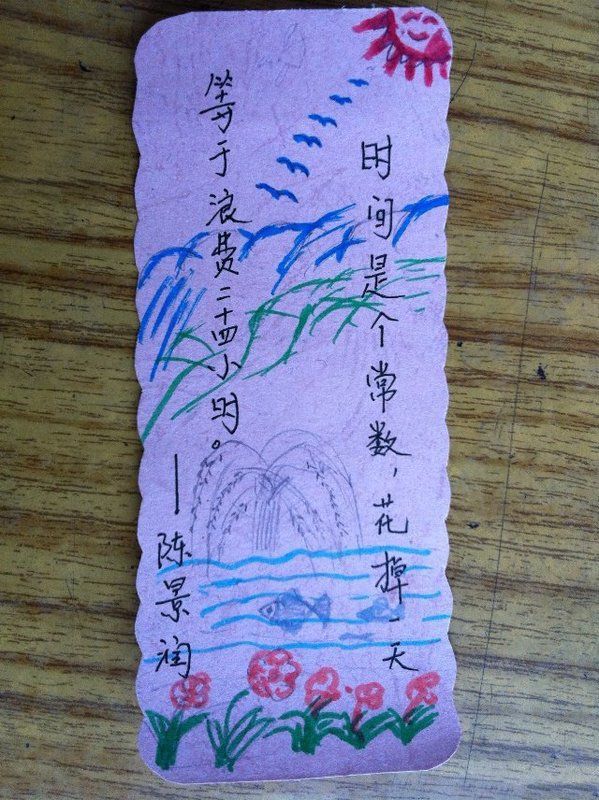 时间是个常数，花掉一天
等于浪费二十四小时。
——陈景润